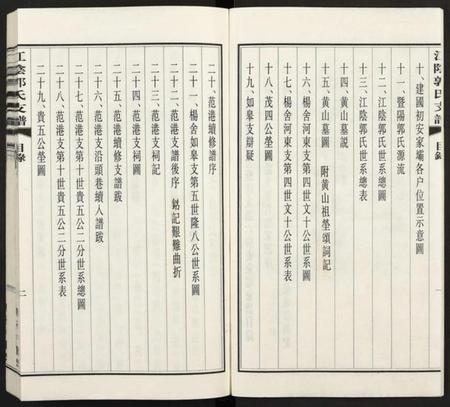 江陰郭氏支譜
目錄
十、建國初安家壩各户位置示意圖
十一、暨陽郭氏源流
十二、江陰郭氏世系總圖
十三、江陰郭氏世系總表
十四、黄山墓説
十五、黄山墓圖 附黄山祖塋頌詞記
十六、楊舍河東支第四世文十公世系圖
十七、楊舍河東支第四世文十公世系表
十八、茂四公塋圖
十九、如皋支辯疑
二十、范港續修支譜序
二十一、楊舍如皋支第五世隆八公世系圖
二十二、范港支譜後序 銘記艱難曲折
二十三、范港支祠記
二十四、范港支祠圖
二十五、范港續修支譜跋
二十六、范港支沿頭巷續人譜跋
二十七、范港支第十世貴五公二分世系總圖
二十八、范港支第十世貴五公二分世系表
二十九、貴五公塋圖
江陰郭氏支譜
目錄
二